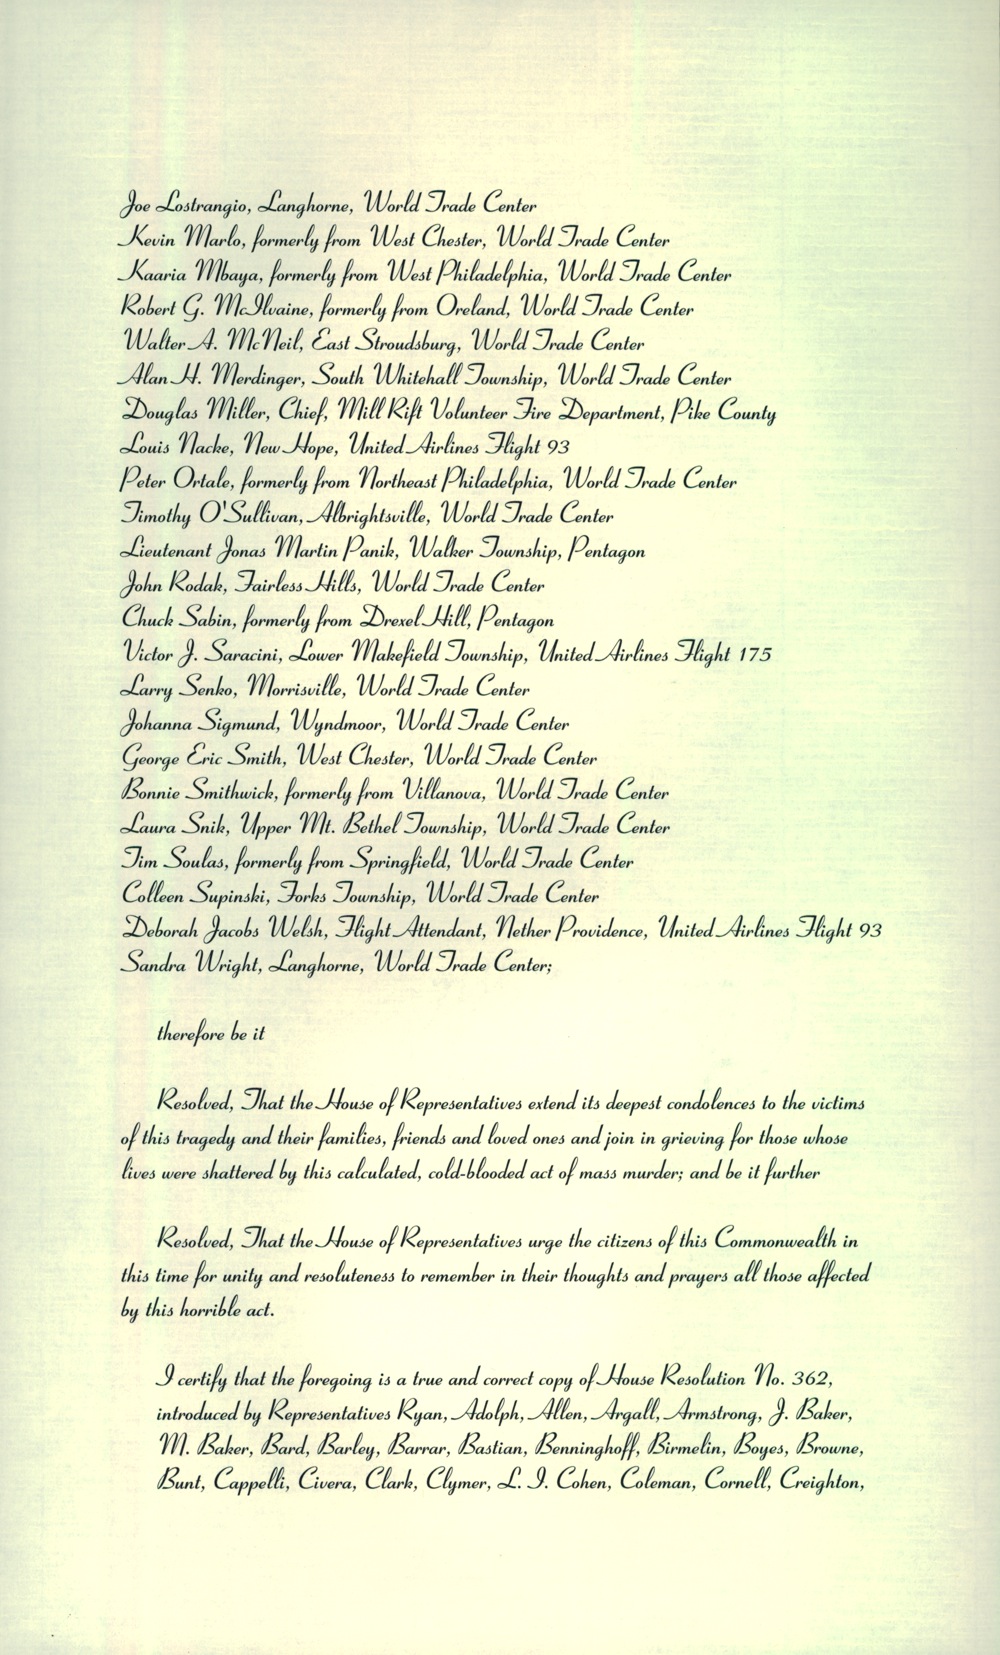 Joe Lostrangio, Langhorne, World Trade Center
Kevin Marlo, formerly from West Chester, World Trade Center
Kaaria Mbaya, formerly from West Philadelphia, World Trade Center
Robert G. McIlvaine, formerly from Oreland, World Trade Center
Walter A. McNeil, East Stroudsburg, World Trade Center
Alan H. Merdinger, South Whitehall Township, World Trade Center
Douglas Miller, Chief, Mill Rift Volunteer Fire Department, Pike County
Louis Nacke, New Hope, United Airlines Flight 93
Peter Ortale, formerly from Northeast Philadelphia, World Trade Center
Timothy O'Sullivan, Albrightsville, World Trade Center
Lieutenant Jonas Martin Panik, Walker Township, Pentagon
John Rodak, Fairless Hills, World Trade Center
Chuck Sabin, formerly from Drexel Hill, Pentagon
Victor J. Saracini, Lower Makefield Township, United Airlines Flight 175
Larry Senko, Morrisville, World Trade Center
Johanna Sigmund, Wyndmoor, World Trade Center
George Eric Smith, West Chester, World Trade Center
Bonnie Smithwick, formerly from Villanova, World Trade Center
Laura Snik, Upper Mt. Bethel Township, World Trade Center
Tim Soulas, formerly from Springfield, World Trade Center
Colleen Supinski, Forks Township, World Trade Center
Deborah Jacobs Welsh, Flight Attendant, Nether Providence, United Airlines Flight 93
Sandra Wright, Langhorne, World Trade Center;
therefore be it
Resolved, That the House of Representatives extend its deepest condolences to the victims
of this tragedy and their families, friends and loved ones and join in grieving for those whose
lives were shattered by this calculated, cold-blooded act of mass murder; and be it further
Resolved, That the House of Representatives urge the citizens of this Commonwealth in
this time for unity and resoluteness to remember in their thoughts and prayers all those affected
by this horrible act.
I certify that the foregoing is a true and correct copy of House Resolution No. 362,
introduced by Representatives Ryan, Adolph, Allen, Argall, Armstrong, J. Baker,
M. Baker, Bard, Barley, Barrar, Bastian, Benninghoff, Birmelin, Boyes, Browne,
Bunt, Cappelli, Civera, Clark, Clymer, L. I. Cohen, Coleman, Cornell, Creighton,